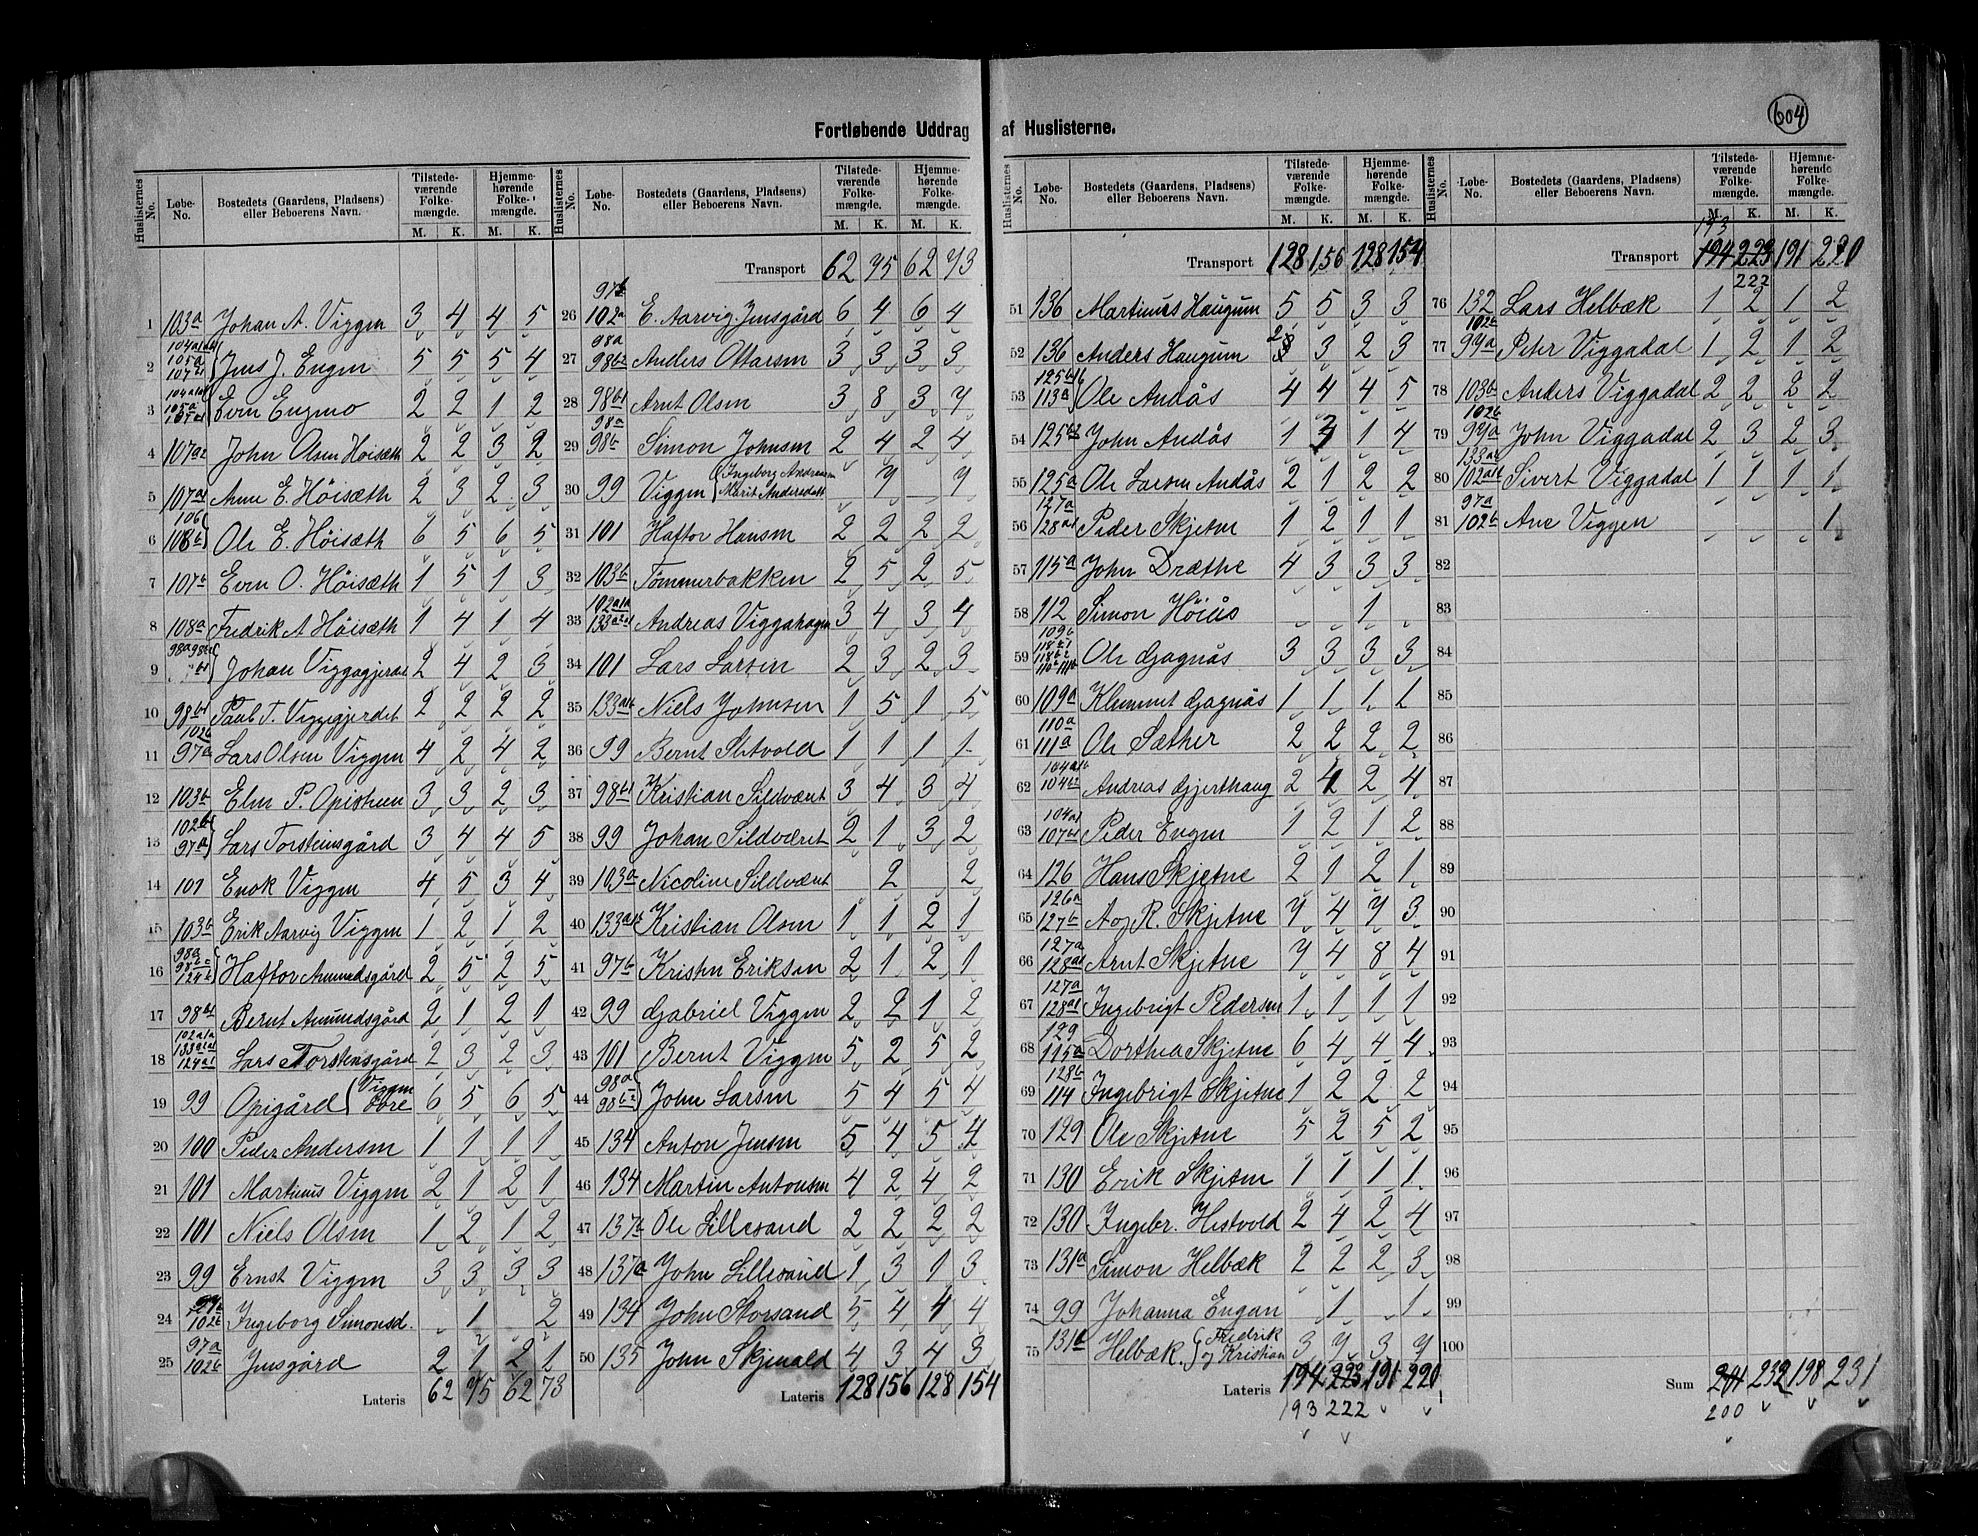 604
Fortløbende Uddrag af Huslisterne.
Huslisternes No. Løbe-No. Bostedets (Gaardens, Pladsens) eller Beboerens Navn. Tilstedeværende Folkemængde. M. K. Hjemmehørende Folkemængde. M. K.
1 103a Johan A. Viggen 3 4 4 5
2 105a Jens J. Engen 5 5 5 4
3 105a Even Engmo 2 2 1 2
4 107a2 John Olsen Höisæth 2 2 3 2
5 107a1 Anne E. Höisæth 2 3 2 3
6 106 108b Ole E. Höisæth 6 5 6 5
7 107b Even O. Höisæth 1 5 1 3
8 108a Fredrik A Höisæth 1 4 1 4
9 Johan Viggagjerdet 2 4 2 3
10 98b1 Paul T. Viggegjerdet 2 2 2 2
11 102b 97a Lars Olsen Viggen 4 2 4 2
12 103b Elen P. Opistuen 3 3 2 3
13 102b 97a Lars Torsteinsgård 3 4 4 5
14 101 Enok Viggen 4 5 3 4
15 103b Erik Aarvig Viggen 1 2 1 2
16 98a Haftor Amundsgård 2 5 2 5
17 98b1 Bernt Amundsgård 2 1 2 1
18 102a1a 133a1a1 124a1 Lars Torstensgård 2 3 2 3
19 99 Opigård (Viggen Övre 6 5 6 5
20 100 Peder Andersen 1 1 1 1
21 101 Martinus Viggen 2 1 2 1
22 101 Niels Olsen 1 2 1 2
23 99 Ernst Viggen 3 3 3 3
24 102b Ingeborg Simonsd. 1 2
25 97a 102b Jensgård 2 1 2 1
Lateris 62 75 62 73
Huslisternes No. Løbe-No. Bostedets (Gaardens, Pladsens) eller Beboerens Navn. Tilstedeværende Folkemængde. M. K. Hjemmehørende Folkemængde. M. K.
Transport 62 75 62 73
26 97b 102a E. Aarvig. Jensgård 6 4 6 4
27 98a 98b2 Anders Ottarsen 3 3 3 3
28 98b1 Arnt Olsen 3 8 3 7
29 98a 98b Simon Johnsen 2 4 2 4
30 99 Viggen (Ingeborg Andreasen Marit Andersdatt 7 7
31 101 Haftor Hansen 2 2 2 2
32 103b Tömmerbakken 2 5 2 5
33 102a1a 133a2a1 Andreas Viggahagen 3 4 3 4
34 101 Lars Larsen 2 3 2 3
35 133a1b Niels Johnsen 1 5 1 5
36 99 Bernt Sletvold 1 1 1 1
37 98b1 Kristian Sildværet 3 4 3 4
38 99 Johan Sildværet 2 1 3 2
39 103a Nicoline Sildværet 2 2
40 133a1b Kristian Olsen 1 1 2 1
41 97b Kristen Eriksen 2 1 2 1
42 99 Gabriel Viggen 2 2 1 2
43 101 Bernt Viggen 5 2 5 2
44 98a 98b2 John Larsen 5 4 5 4
45 134 Anton Jensen 5 4 5 4
46 134 Martin Antonsen 4 2 4 2
47 137b Ole Lillesand 2 2 2 2
48 137a John Lillesand 1 3 1 3
49 134 John Storsand 5 4 4 4
50 135 John Skjenald 4 3 4 3
Lateris 128 156 128 154
Huslisternes No. Løbe-No. Bostedets (Gaardens, Pladsens) eller Beboerens Navn. Tilstedeværende Folkemængde. M. K. Hjemmehørende Folkemængde. M. K.
Transport 128 156 128 154
51 136 Martinus Haugum 5 5 3 3
52 136 Anders Haugum 2 3 2 3
53 125b1b 113a Ole Andås 4 4 4 5
54 125b2 John Andås 1 1 4
55 125a Ole Larsen Andås 2 1 2 2
56 127a 128a1 Peder Skjetne 1 2 1 1
57 115a John Dræthe 4 3 3 3
58 112 Simon Höiås 1
59 109b 118b1 118b2 Ole Gagnås 3 3 3 3
60 109a Klemmet Gagnås 1 1 1 1
61 110a 111a Ole Sæther 2 2 2 2
62 104a1b 104b2 Andreas Gjerthaug 2 4 2 4
63 104a1 107b1 Peder Engen 1 2 1 2
64 126 Hans Skjetne 2 1 2 1
65 126a 127b A og R. Skjetne 7 4 7 3
66 127a 128a1 Arnt Skjetne 7 4 8 4
67 127a 128a1 Ingebrigt Pedersen 1 1 1 1
68 129 115a Dorthea Skjetne 6 4 4 4
69 128b 114 Ingebrigt Skjetne 1 2 2 2
70 129 Ole Skjetne 5 2 5 2
71 130 Erik Skjetne 1 1 1 1
72 130 Ingebr. Hestvold 2 4 2 4
73 131a Simon Helbæk 2 2 2 3
74 99 Johanna Engan 1 1
75 131b Helbæk. (Fredrik og Kristian 3 9 3 9
Lateris 194 223 191 220
193 222
Huslisternes No. Løbe-No. Bostedets (Gaardens, Pladsens) eller Beboerens Navn. Tilstedeværende Folkemængde. M. K. Hjemmehørende Folkemængde. M. K.
193
Transport 194 223 191 220
222
76 132 Lars Helbæk 1 2 1 2
77 102b 99a Peter Viggadal 1 2 1 2
78 103b Anders Viggadal 2 2 2 2
79 102b 99a John Viggadal 2 3 2 3
80 133a1 102a1b Sivert Viggadal 1 1 1 1
81 97a 102b Ane Viggen 1
82
83
84
85
86
87
88
89
90
91
92
93
94
95
96
97
98
99
100
Sum 201 232 198 231
200